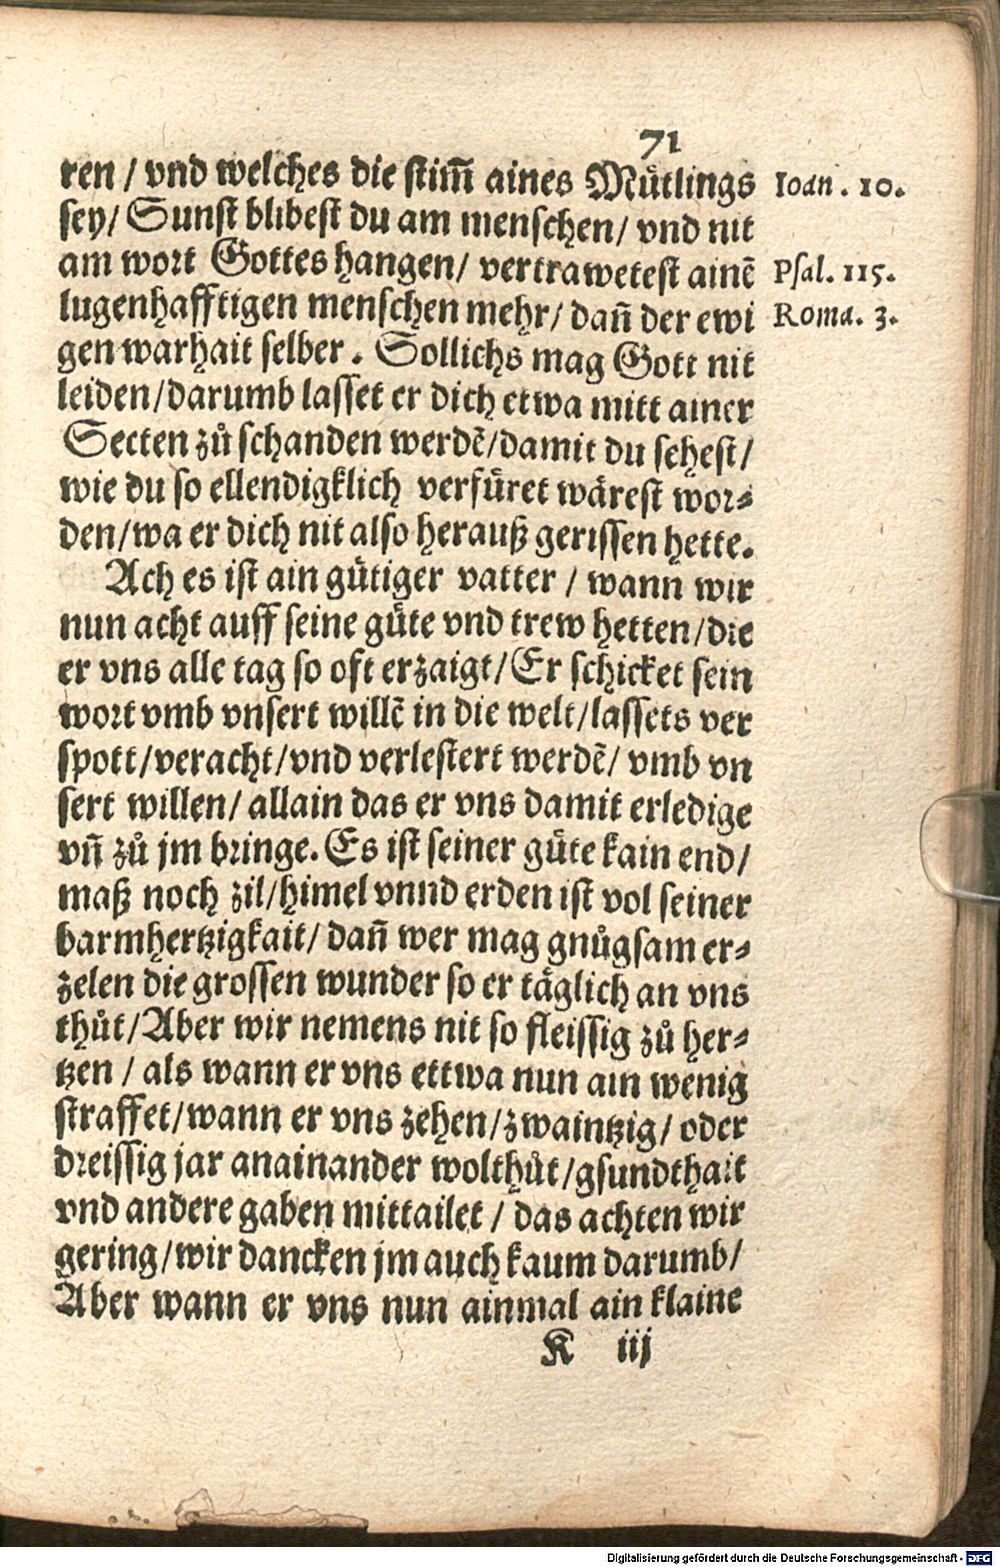 71
ren / vnd welches die stim̃ aines Mütlings Ioan. 10.
sey/ Sunst blibest du am menschen/ vnd nit
am wort Gottes hangen/ vertrawetest ainẽ Psal. 115.
lugenhafftigen menschen mehr/ dañ der ewi Roma. 3.
gen warhait selber. Sollichs mag Gott nit
leiden/darumb lasset er dich etwa mitt ainer
Secten zů schanden werdẽ/damit du sehest/
wie du so ellendigklich verfüret wärest wor-
den/wa er dich nit also herauß gerissen hette.
Ach es ist ain gütiger vatter / wann wir
nun acht auff seine güte vnd trew hetten/die
er vns alle tag so oft erzaigt/Er schicket sein
wort vmb vnsert willẽ in die welt/lassets ver
spott/veracht/vnd verlestert werdẽ/ vmb vn
sert willen/ allain das er vns damit erledige
vñ zů jm bringe. Es ist seiner güte kain end/
maß noch zil/himel vnnd erden ist vol seiner
barmhertzigkait/ dañ wer mag gnůgsam er-
zelen die grossen wunder so er täglich an vns
thůt/Aber wir nemens nit so fleissig zů her-
tzen / als wann er vns ettwa nun ain wenig
straffet/wann er vns zehen/zwaintzig/ oder
dreissig jar anainander wolthůt/gsundthait
vnd andere gaben mittailet / das achten wir
gering/wir dancken jm auch kaum darumb/
Aber wann er vns nun ainmal ain klaine
K iij
Digitalisierung gefördert durch die Deutsche Forschungsgemeinschaft - DFG